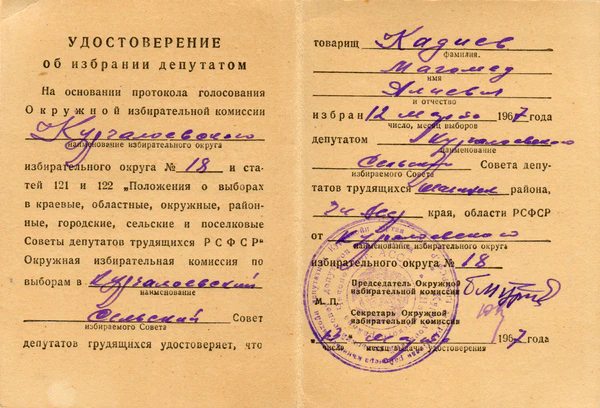 УДОСТОВЕРЕНИЕ
об избрании депутатом
На основании протокола голосования
Окружной избирательной комиссии
Курчалоевского
наименование избирательного округа
избирательного округа № 18 и ста-
тей 121 и 122 „Положения о выборах
в краевые, областные, окружные, район-
ные, городские, сельские и поселковые
Советы депутатов трудящихся РСФСР"
Окружная избирательная комиссия по
выборам в Курчалоевский
наименование
Сельский Совет
избираемого Совета
депутатов трудящихся удостоверяет, что
товарищ Кадиев
фамилия.
Магомед
имя
Алиевич
и отчество
избран 12 марта 1967 года
число, месяц выборов
депутатом Курчалоевского
наименование
Сельский Совета депу-
избираемого Совета
татов трудящихся района,
края, области РСФСР
от Курчалоевского
наименование избирательного округа
избирательного округа № 18
Председатель Окружной
избирательной комиссии
М. П.
Секретарь Окружной
избирательной комиссии
марта 1967 года
число, месяц выдачи удостоверения